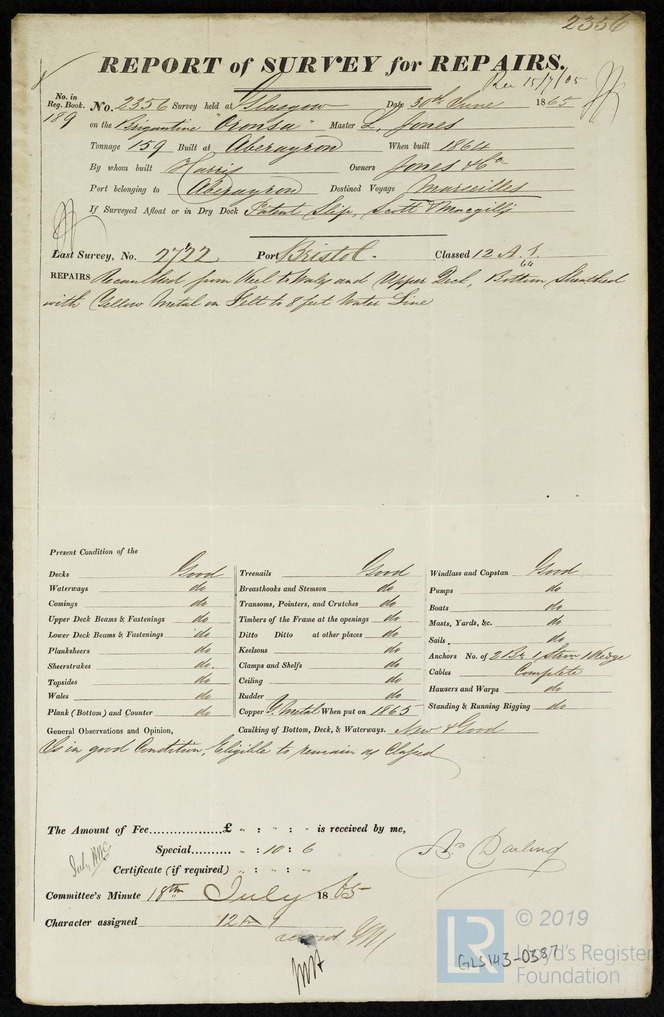 2356
REPORT of SURVEY for REPAIRS.
Rec 15/7/65
No. in Reg. Book. No. 2356 Survey held at Glasgow Date 30th June 1865
189 on the Brigantine "Oronsa" Master L. Jones
Tonnage 159 Built at Aberayron When built 1864
By whom built Harris Owners Jones & Co
Port belonging to Aberayron Destined Voyage Marseilles
If Surveyed Afloat or in Dry Dock Patent Slip, Scott & Macgill's
Last Survey, No. 2722 Port Bristol. Classed 12 A. 1. 64
REPAIRS Recaulked from Keel to Wales and Upper Deck, Bottom Sheathed
with Yellow Metal on Felt to 8 feet Water Line
Present Condition of the
Decks Good Treenails Good Windlass and Capstan Good
Waterways do Breasthooks and Stemson do Pumps do
Comings do Transoms, Pointers, and Crutches do Boats do
Upper Deck Beams & Fastenings do Timbers of the Frame at the openings do Masts, Yards, &c. do
Lower Deck Beams & Fastenings do Ditto Ditto at other places do Sails. do
Planksheers do Keelsons do Anchors No. of 2 Br 1 Strm 1 Kedge
Sheerstrakes do. Clamps and Shelfs do Cables Complete
Topsides do Ceiling do Hawsers and Warps do
Wales do Rudder do Standing & Running Rigging do
Plank (Bottom) and Counter do Copper Y. Metal When put on 1865
General Observations and Opinion, Caulking of Bottom, Deck, & Waterways. New & Good
Is in good Condition, Eligible to remain as Classed
The Amount of Fee....................£ " : " : " is received by me,
Special......... " : 10 : 6
Certificate (if required) " : " : "
As. Darling
Committee's Minute 18th July 1865
Character assigned 12 A 1
© 2019
LR Lloyd's Register
Foundation
GLS143-0387